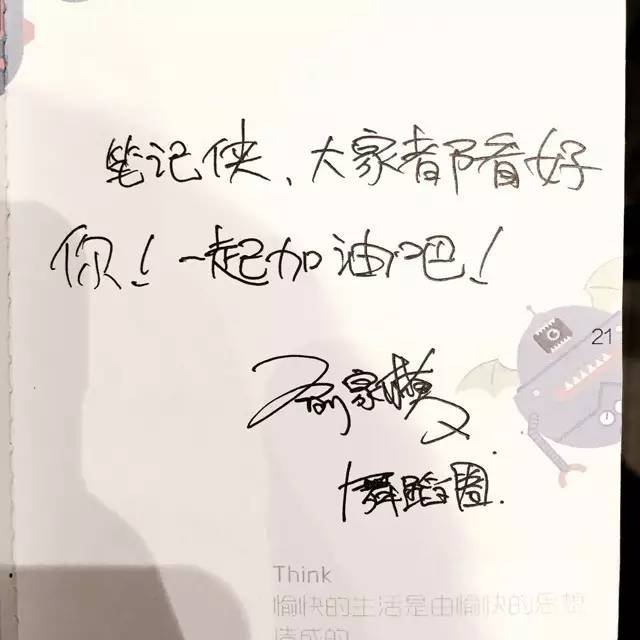 笔记侠、大家都看好
你！一起加油吧！
舞蹈圈.
21
Think
愉快的生活是由愉快的思想
造成的